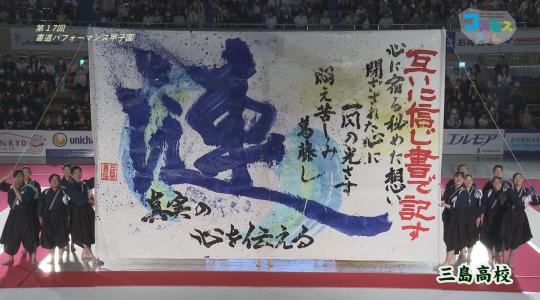 第17回
書道パフォーマンス甲子園
コスモス
互いに信じ書で記す
心に宿る秘めた想い
閉ざされた心に
一閃の光さす
悶え苦しみ
葛藤し
漣
真実の
心を伝える
unicha
エルモア
三島高校